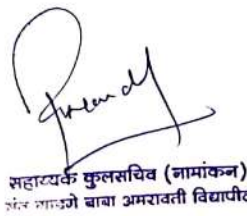 सहाय्यक कुलसचिव (नामांकन)
गाडगे बाबा अमरावती विद्यापीठ